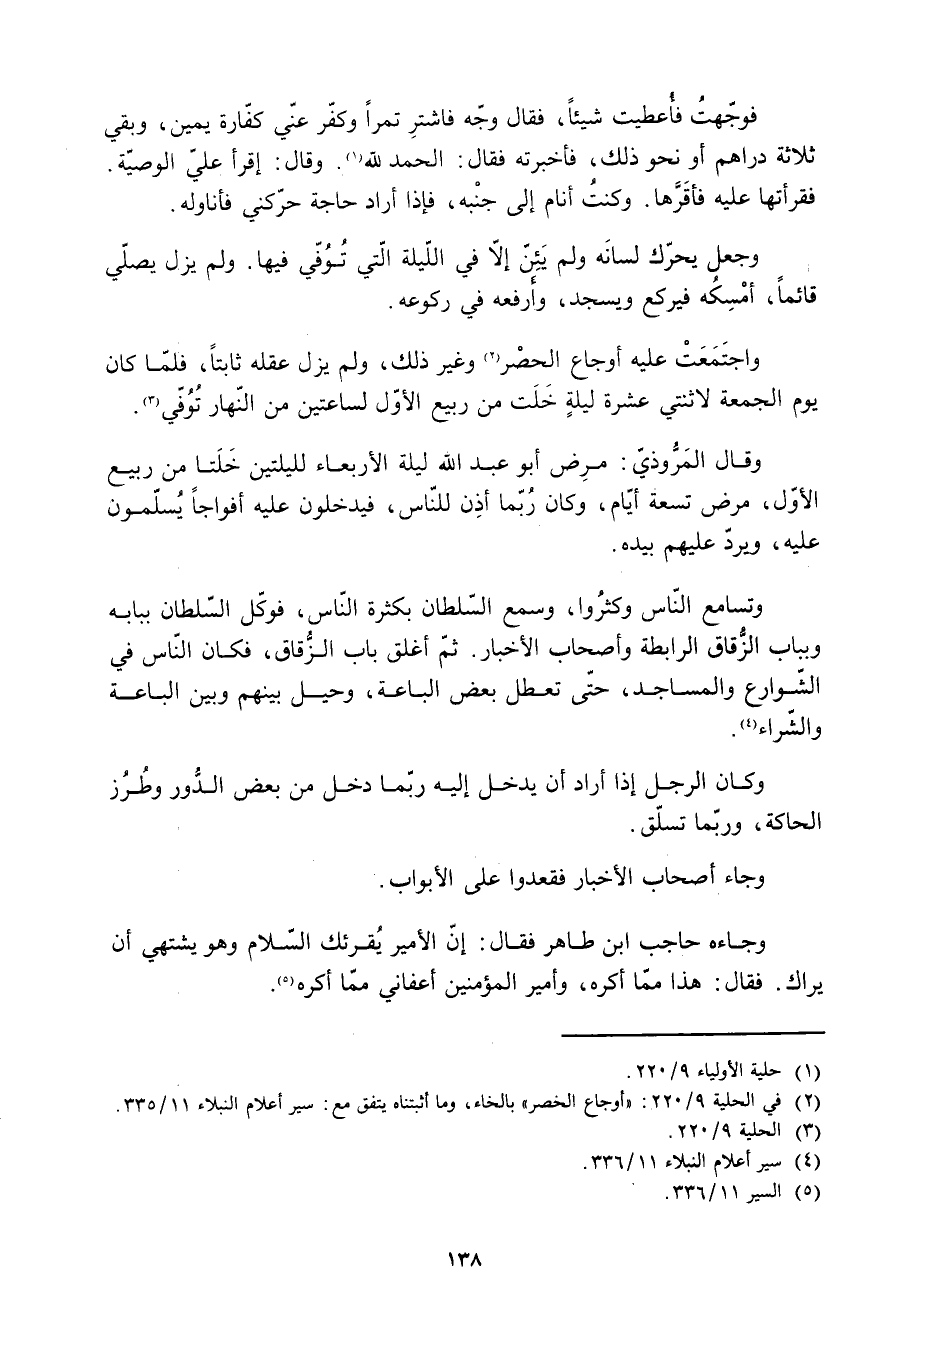 فوجّهتُ فأُعطيت شيئاً، فقال وجّه فاشترِ تمراً وكفّر عنّي كفّارة يمين، وبقي
ثلاثة دراهم أو نحو ذلك، فأخبرته فقال: الحمد لله(١). وقال: إقرأ عليّ الوصيّة.
فقرأتها عليه فأقَرَّها. وكنتُ أنام إلى جنْبه، فإذا أراد حاجة حرّكني فأناوله.
وجعل يحرّك لسانَه ولم يَئِنّ إلاّ في اللّيلة الّتي تُوُفّي فيها. ولم يزل يصلّي
قائماً، أمْسِكُه فيركع ويسجد، وأرفعه في ركوعه.
واجتَمَعَتْ عليه أوجاع الحصْر(٢) وغير ذلك، ولم يزل عقله ثابتاً، فلمّا كان
يوم الجمعة لاثنتي عشرة ليلةٍ خَلَت من ربيع الأوّل لساعتين من النّهار تُوُفّي(٣).
وقال المَرُّوذيّ: مرِض أبو عبد الله ليلة الأربعاء لليلتين خَلَتا من ربيع
الأوّل، مرض تسعة أيّام، وكان رُبّما أذِن للنّاس، فيدخلون عليه أفواجاً يُسلّمون
عليه، ويردّ عليهم بيده.
وتسامع النّاس وكثُروا، وسمع السّلطان بكثرة النّاس، فوكّل السّلطان ببابه
وبباب الزُّقاق الرابطة وأصحاب الأخبار. ثمّ أغلق باب الزُّقاق، فكان النّاس في
الشّوارع والمساجد، حتّى تعطل بعض الباعة، وحيل بينهم وبين الباعة
والشّراء(٤).
وكان الرجل إذا أراد أن يدخل إليه ربّما دخل من بعض الدُّور وطُرُز
الحاكة، وربّما تسلّق.
وجاء أصحاب الأخبار فقعدوا على الأبواب.
وجاءه حاجب ابن طاهر فقال: إنّ الأمير يُقرئك السّلام وهو يشتهي أن
يراك. فقال: هذا ممّا أكره، وأمير المؤمنين أعفاني ممّا أكره(٥).
(١) حلية الأولياء ٢٢٠/٩.
(٢) في الحلية ٢٢٠/٩: «أوجاع الخصر» بالخاء، وما أثبتناه يتفق مع: سير أعلام النبلاء ٣٣٥/١١.
(٣) الحلية ٢٢٠/٩.
(٤) سير أعلام النبلاء ٣٣٦/١١.
(٥) السير ٣٣٦/١١.
١٣٨